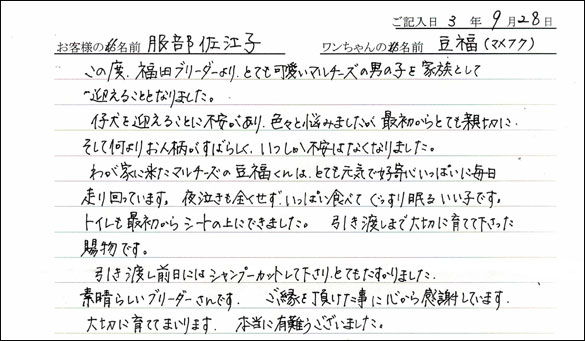 ご記入日 3 年 9 月 28 日
お客様のお名前 服部佐江子 ワンちゃんのお名前 豆福(マメフク)
この度、福田ブリーダーより、とても可愛いマルチーズの男の子を家族として
迎えることとなりました。
仔犬を迎えることに不安があり、色々と悩みましたが最初からとても親切に、
そして何よりお人柄がすばらしく、いつしか不安はなくなりました。
わが家に来たマルチーズの豆福くんは、とても元気で好奇心いっぱいに毎日
走り回っています。夜泣きも全くせず、いっぱい食べてぐっすり眠るいい子です。
トイレも最初からシートの上にできました。 引き渡しまで大切に育てて下さった
賜物です。
引き渡し前日にはシャンプーカットして下さり、とてもたすかりました。
素晴らしいブリーダーさんです。 ご縁を頂けた事に心から感謝しています。
大切に育ててまいります。 本当に有難うございました。